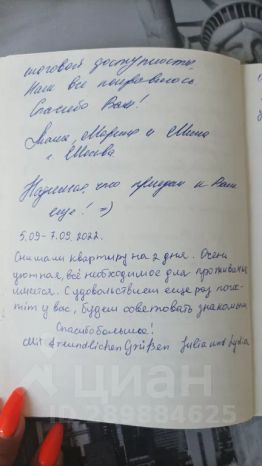 шаговой доступности
Нам всё понравилось
Спасибо Вам!
Маша, Марина и
г. Москва
Надеемся, что приедем к Вам
ещё! =)
5.09-7.09.2022.
Снимали квартиру на 2 дня. Очень
уютная, всё необходимое для проживания
имеется. С удовольствием ещё раз погос-
тим у вас, будем советовать знакомым
Спасибо большое!
Mit freundlichen Grüßen Julia und Lydia
циан